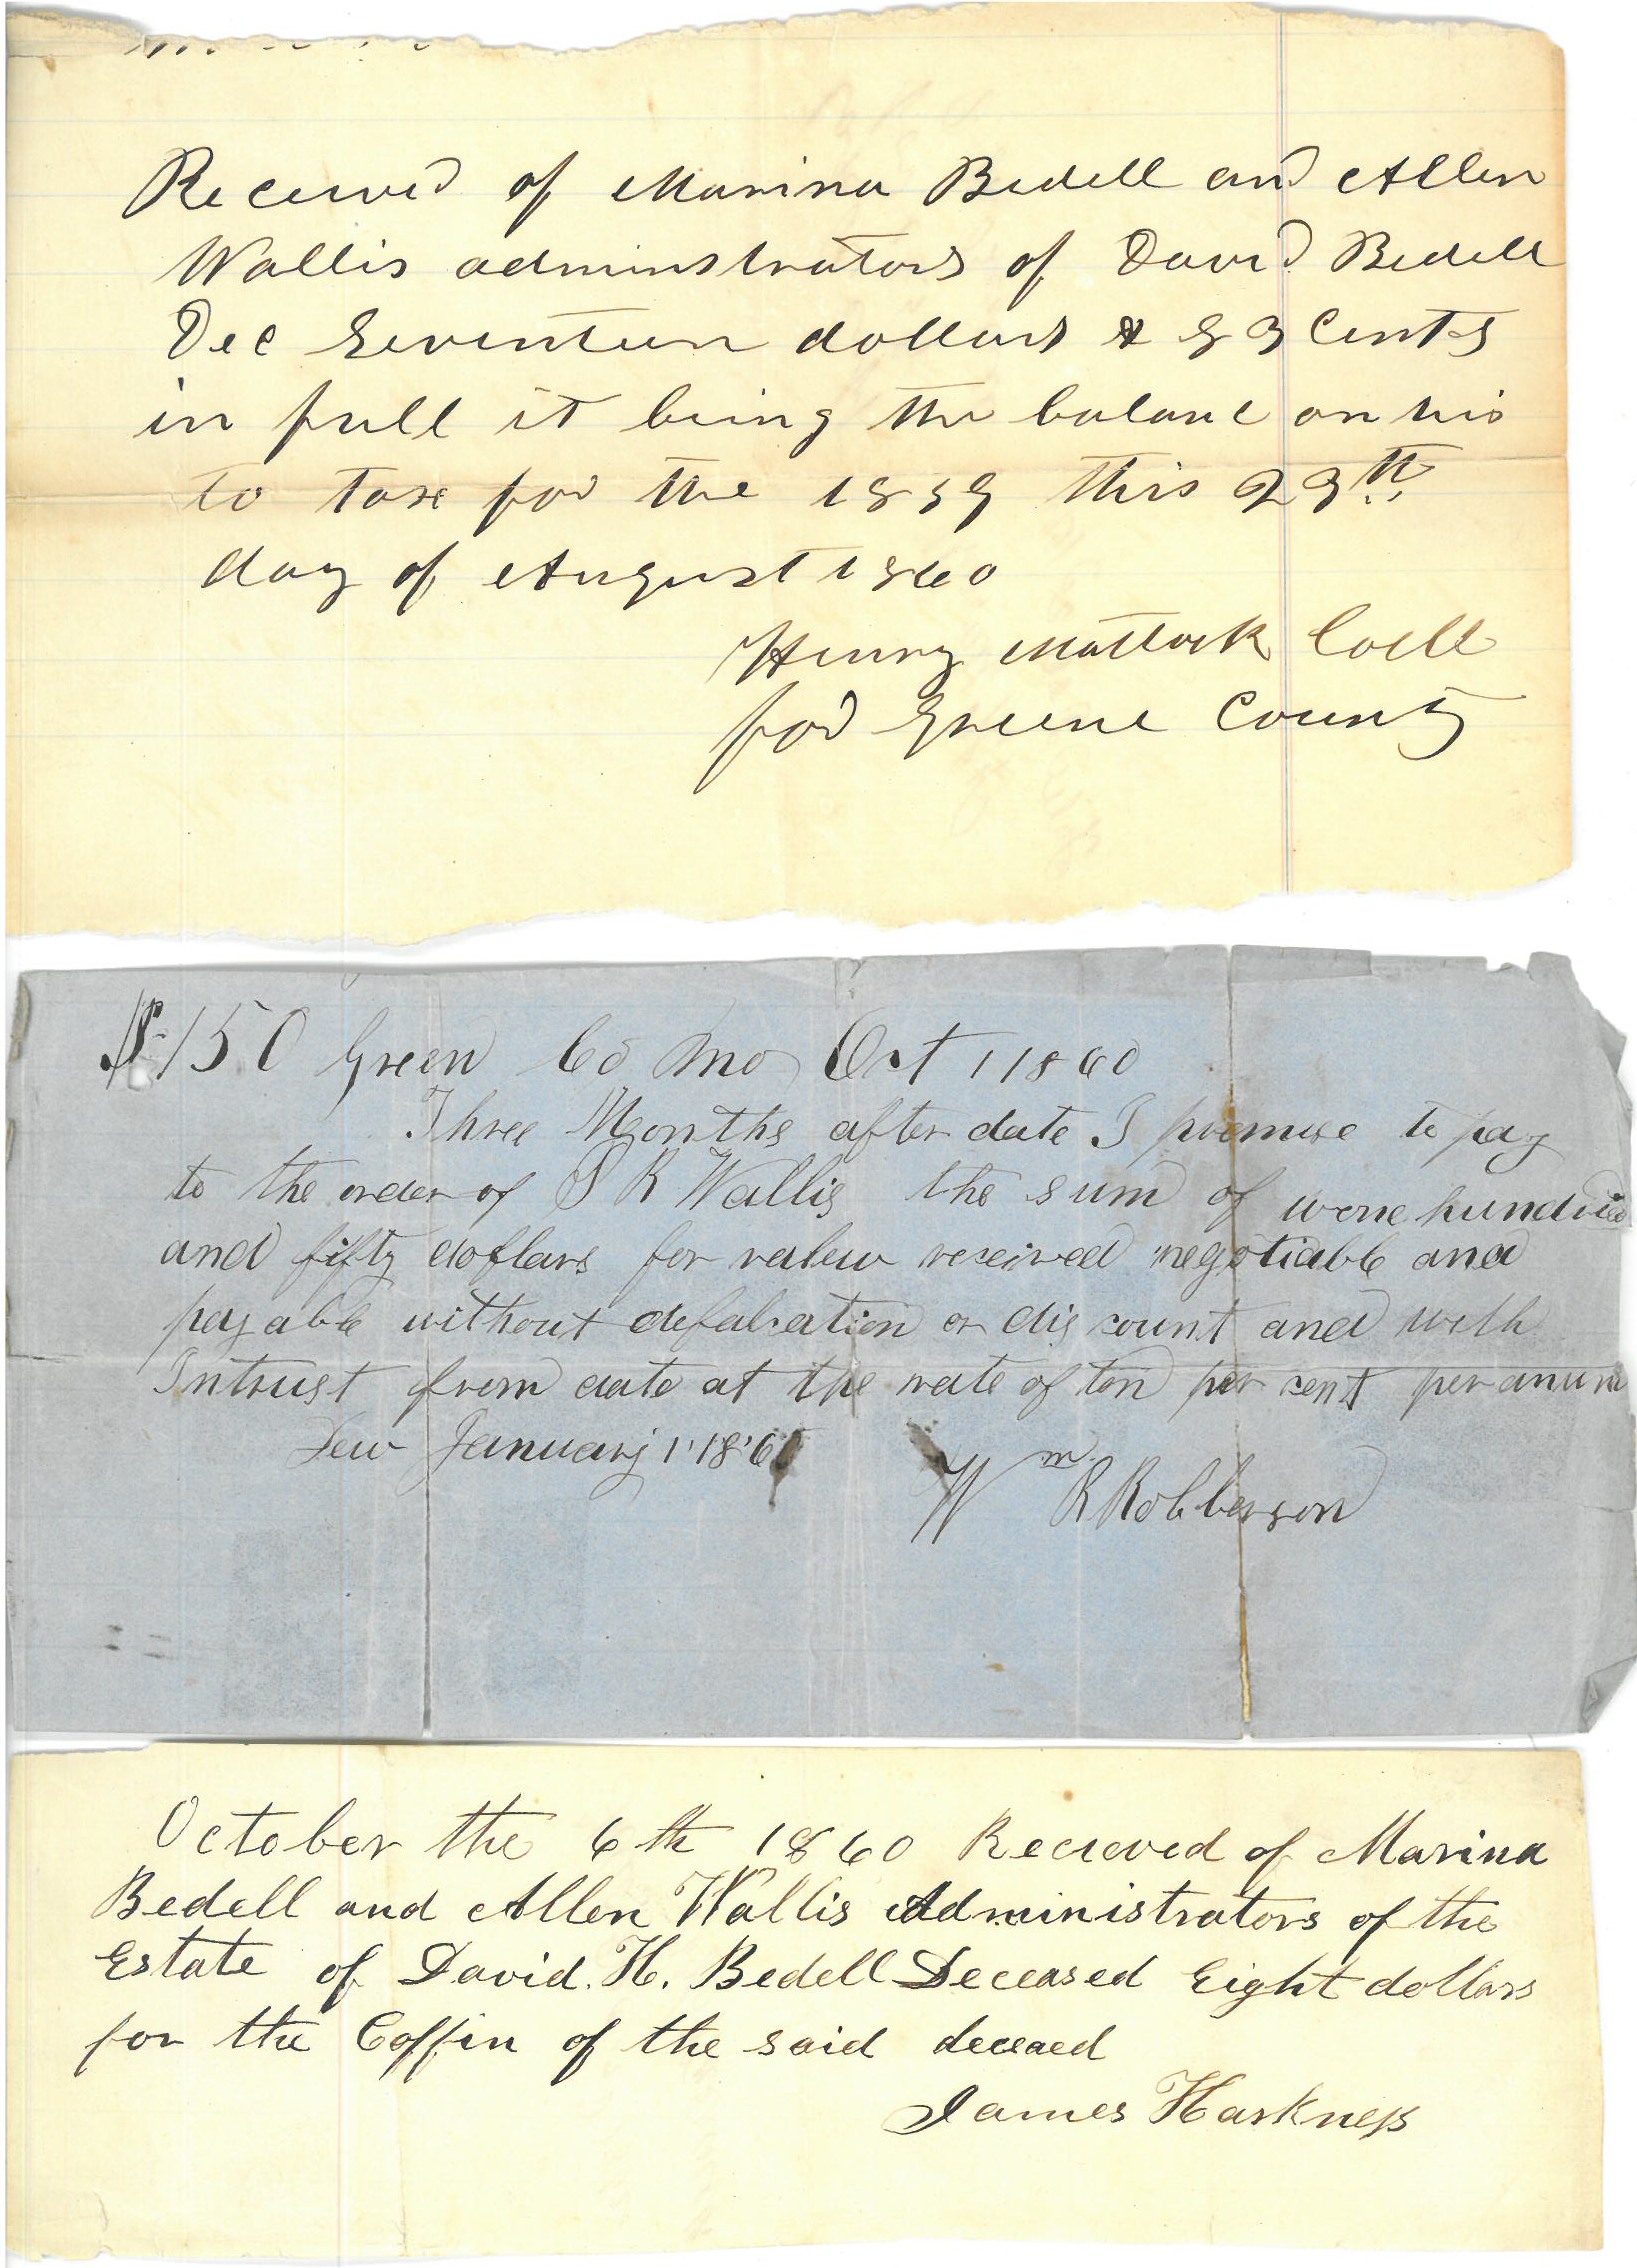 Received of Marina Bedell and Allen
Wallis adminstrators of David Bedell
Dec Seventeen dollars & 83 Cents
in full it being the balanc on his
to tax for the 1859 this 23th
day of August 1860
Henry Matlock Coll
for Greene County
$150 Green Co Mo Oct 1 1860
Three Months after date I promise to pay
to the order of S R Wallis the sum of wone hundred
and fifty dollars for valew received negotiable and
payable without defalcation or discount and with
Intrust from date at the rate of ten per cent per anum
Dew January 1 186
Wm R Robberson
October the 6th 1860 Recieved of Marina
Bedell and Allen Wallis Administrators of the
Estate of David. H. Bedell Deceased Eight dollars
for the Coffin of the said deceaed
James Harkness